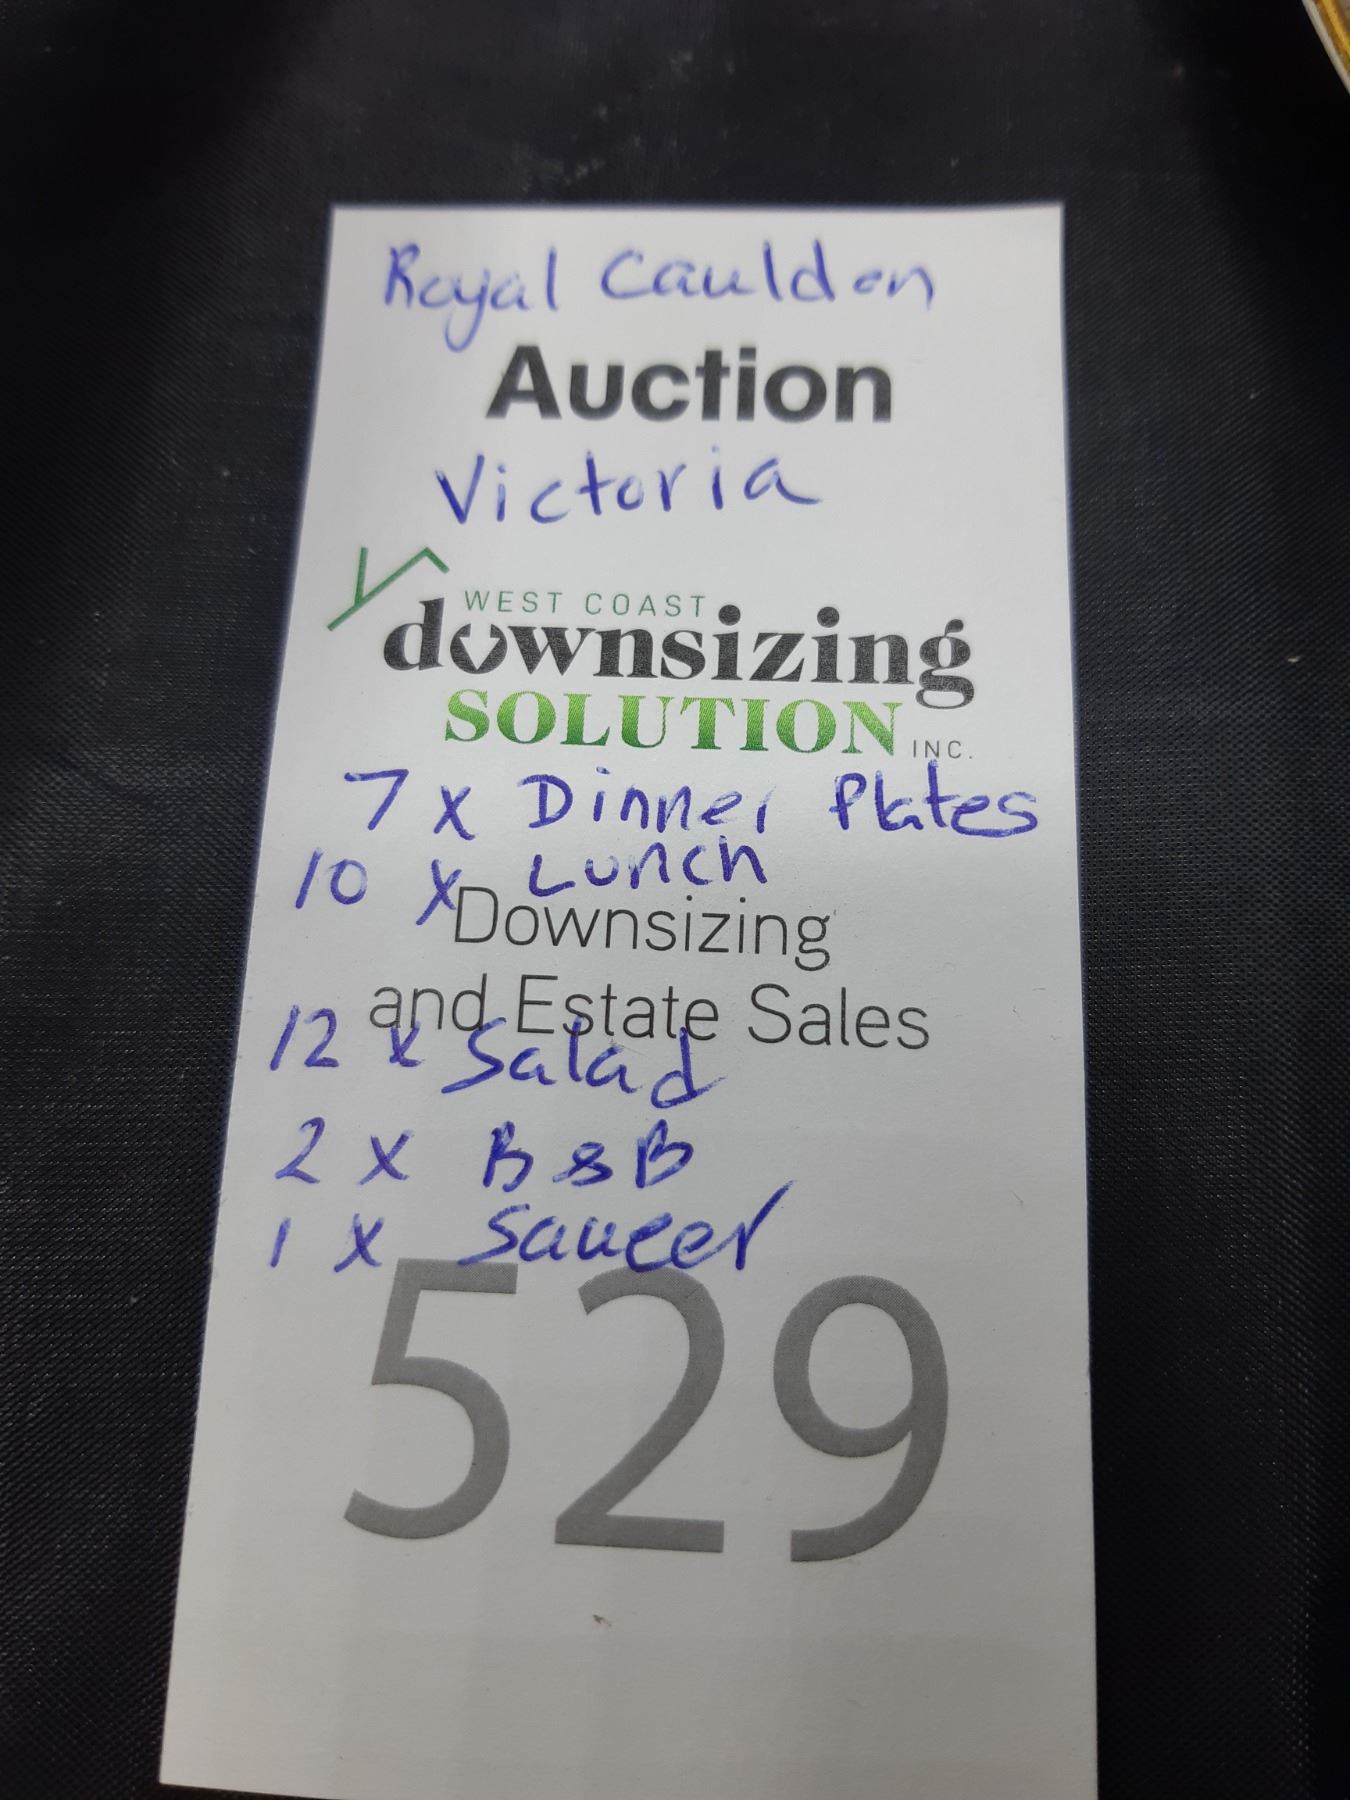 Royal Cauldon
Auction
Victoria
WEST COAST
downsizing
SOLUTION INC.
7 x Dinner Plates
10 x Lunch
Downsizing
and Estate Sales
12 x Salad
2 x B & B
1 x Saucer
529